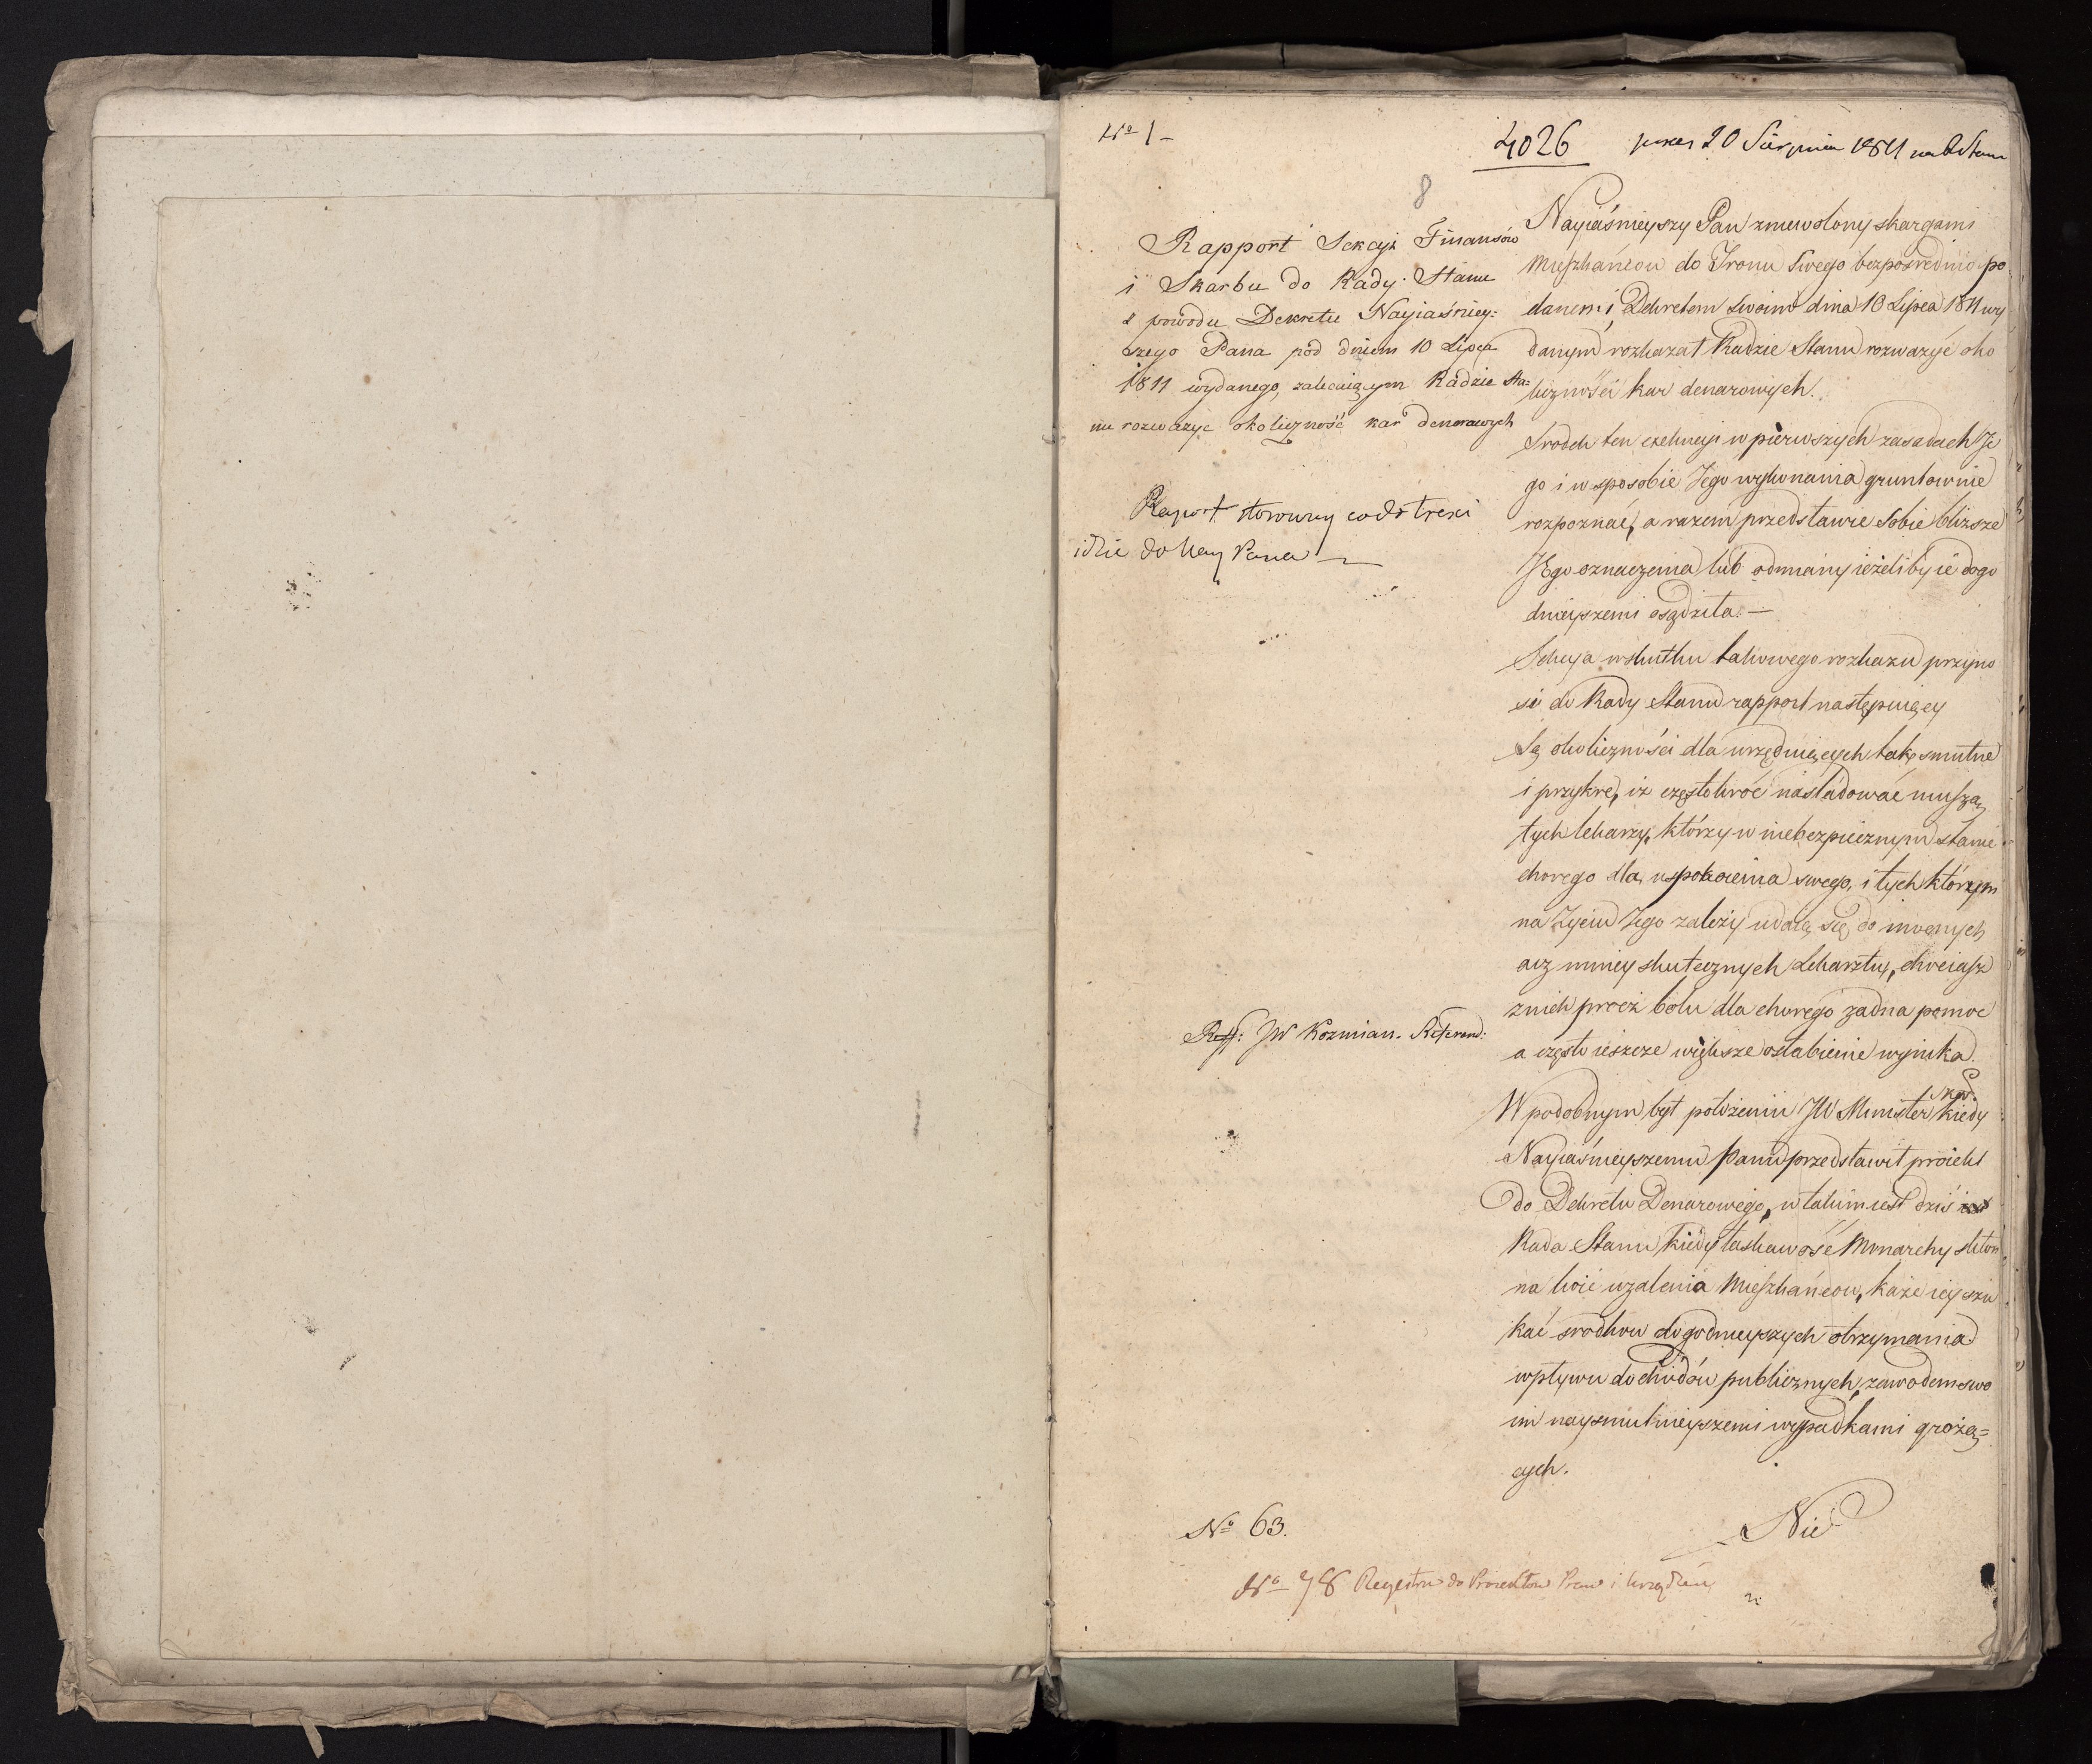 No 1 -
4026 pres 20 Sierpnia 1811 na R Stanu
8
Rapport Sekcyi Finansów
i Skarbu do Rady Stanu
z powodu Dekretu Nayiaśniey=
szego Pana pod dniem 10 Lipca
1811 wydanego, zalecaiącym Radzie Sta=
nu rozważyć okoliczność kar denarowych
Raport stosowny co do treści
idzie do Nay Pana —
Reff: JW Kozmian. Referend:
Nayiaśnieyszy Pan zniewolony skargami
Mieszkańcow do Tronu Swego bezpośrednio po
danemi, Dekretem Swoim dnia 10 Lipca 1811 wy
danym rozkazał Radzie Stanu rozważyć oko
liczności kar denarowych.
Srodek ten exekucyi w pierwszych zasadach Je
go i w sposobie Jego wykonania gruntownie
rozpoznać, a razem przedstawić Sobie bliższe
Jego oznaczenia lub odmiany ieżeliby ie dogo
dnieyszemi osądziła. —
Sekcya w skutku takowego rozkazu przyno
si do Rady Stanu rapport następuiący
Są okoliczności dla urzęduiących tak smutne
i przykre, iż częstokroć naśladować muszą
tych lekarzy, którzy w niebezpiecznym stanie
chorego dla uspokoienia swego, i tych którym
na Życiu Jego zależy udaią się do mocnych
acz mniey skutecznych Lekarstw, chociasz
z nich procż bolu dla chorego żadna pomoc
a często ieszcze większe osłabienie wynika.
W podobnym był położeniu JW Minister Skar. kiedy
Nayiaśnieyszemu Panu przedstawił proiekt
do Dekretu Denarowego, w takim iest dziś
Rada Stanu kiedy łaskawość Monarchy skłon
na koić użalenia Mieszkańcow, każe iey szu
kać srodkow dogodnieyszych otrzymania
wpływu dochodów publicznych, zawodem swo
im naysmutnieyszemi wypadkami grożą=
cych.
No 63.
Nie
No 78 Regestru do Proiektow Praw i Urządzeń